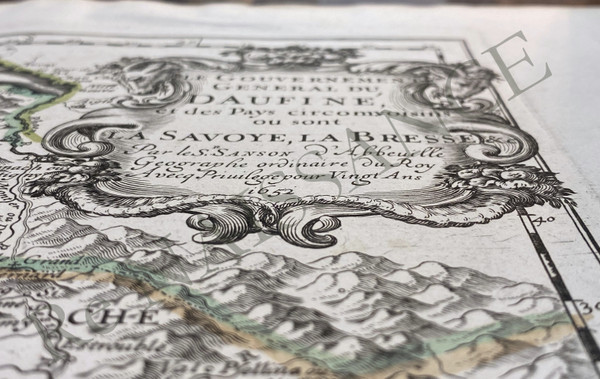 GOUVERNEMEN
GENERAL DU
DAUFINE
et des Pays circomvoisins
ou sont
LA SAVOYE, LA BRESSE, &c
Par le Sr. SANSON d'Abbeville
Geographe ordinaire du Roy
Avecq Privilege pour Vingt Ans
1652
40
Grand
CHE
Estrouble
Val Pellina